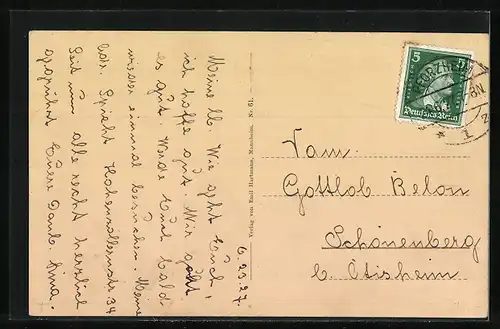 6.23.27.
Meine lb. Wie geht Euch,
ich hoffe gut. Wir geht
es gut. Werde Euch bald
wieder einmal besuchen. Meine
Adr. Hohenzollernstr. 34
Seit nun alle recht herzlich
gegrüsst Euere Dank. Lina.
Verlag von Emil Hartmann, Mannheim. Nr. 61.
Fam.
Gottlob Belon
Schönenberg
b. Ötisheim
5
Deutsches Reich
PFORZHEIM